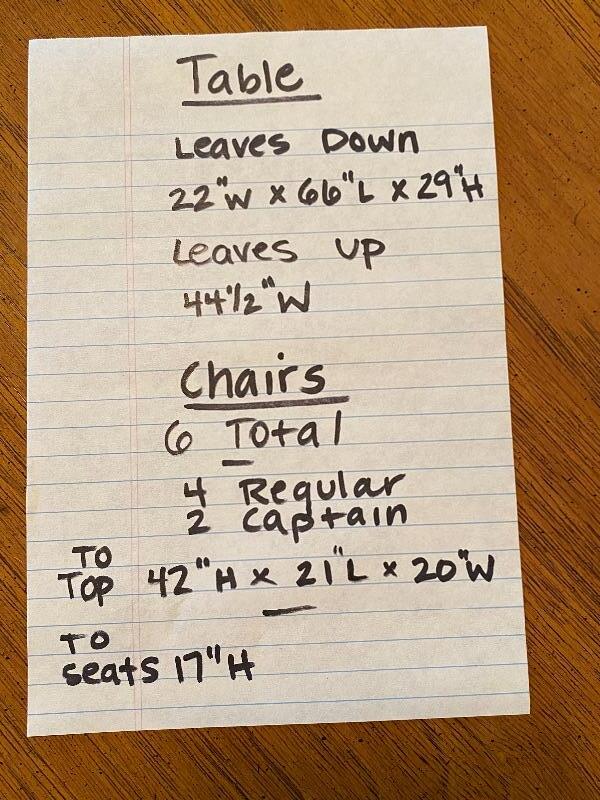 Table
Leaves Down
22"W x 66"L x 29"H
Leaves up
44 1/2"W
Chairs
6 Total
4 Regular
2 captain
TO
Top 42"H x 21"L x 20"W
TO
seats 17"H